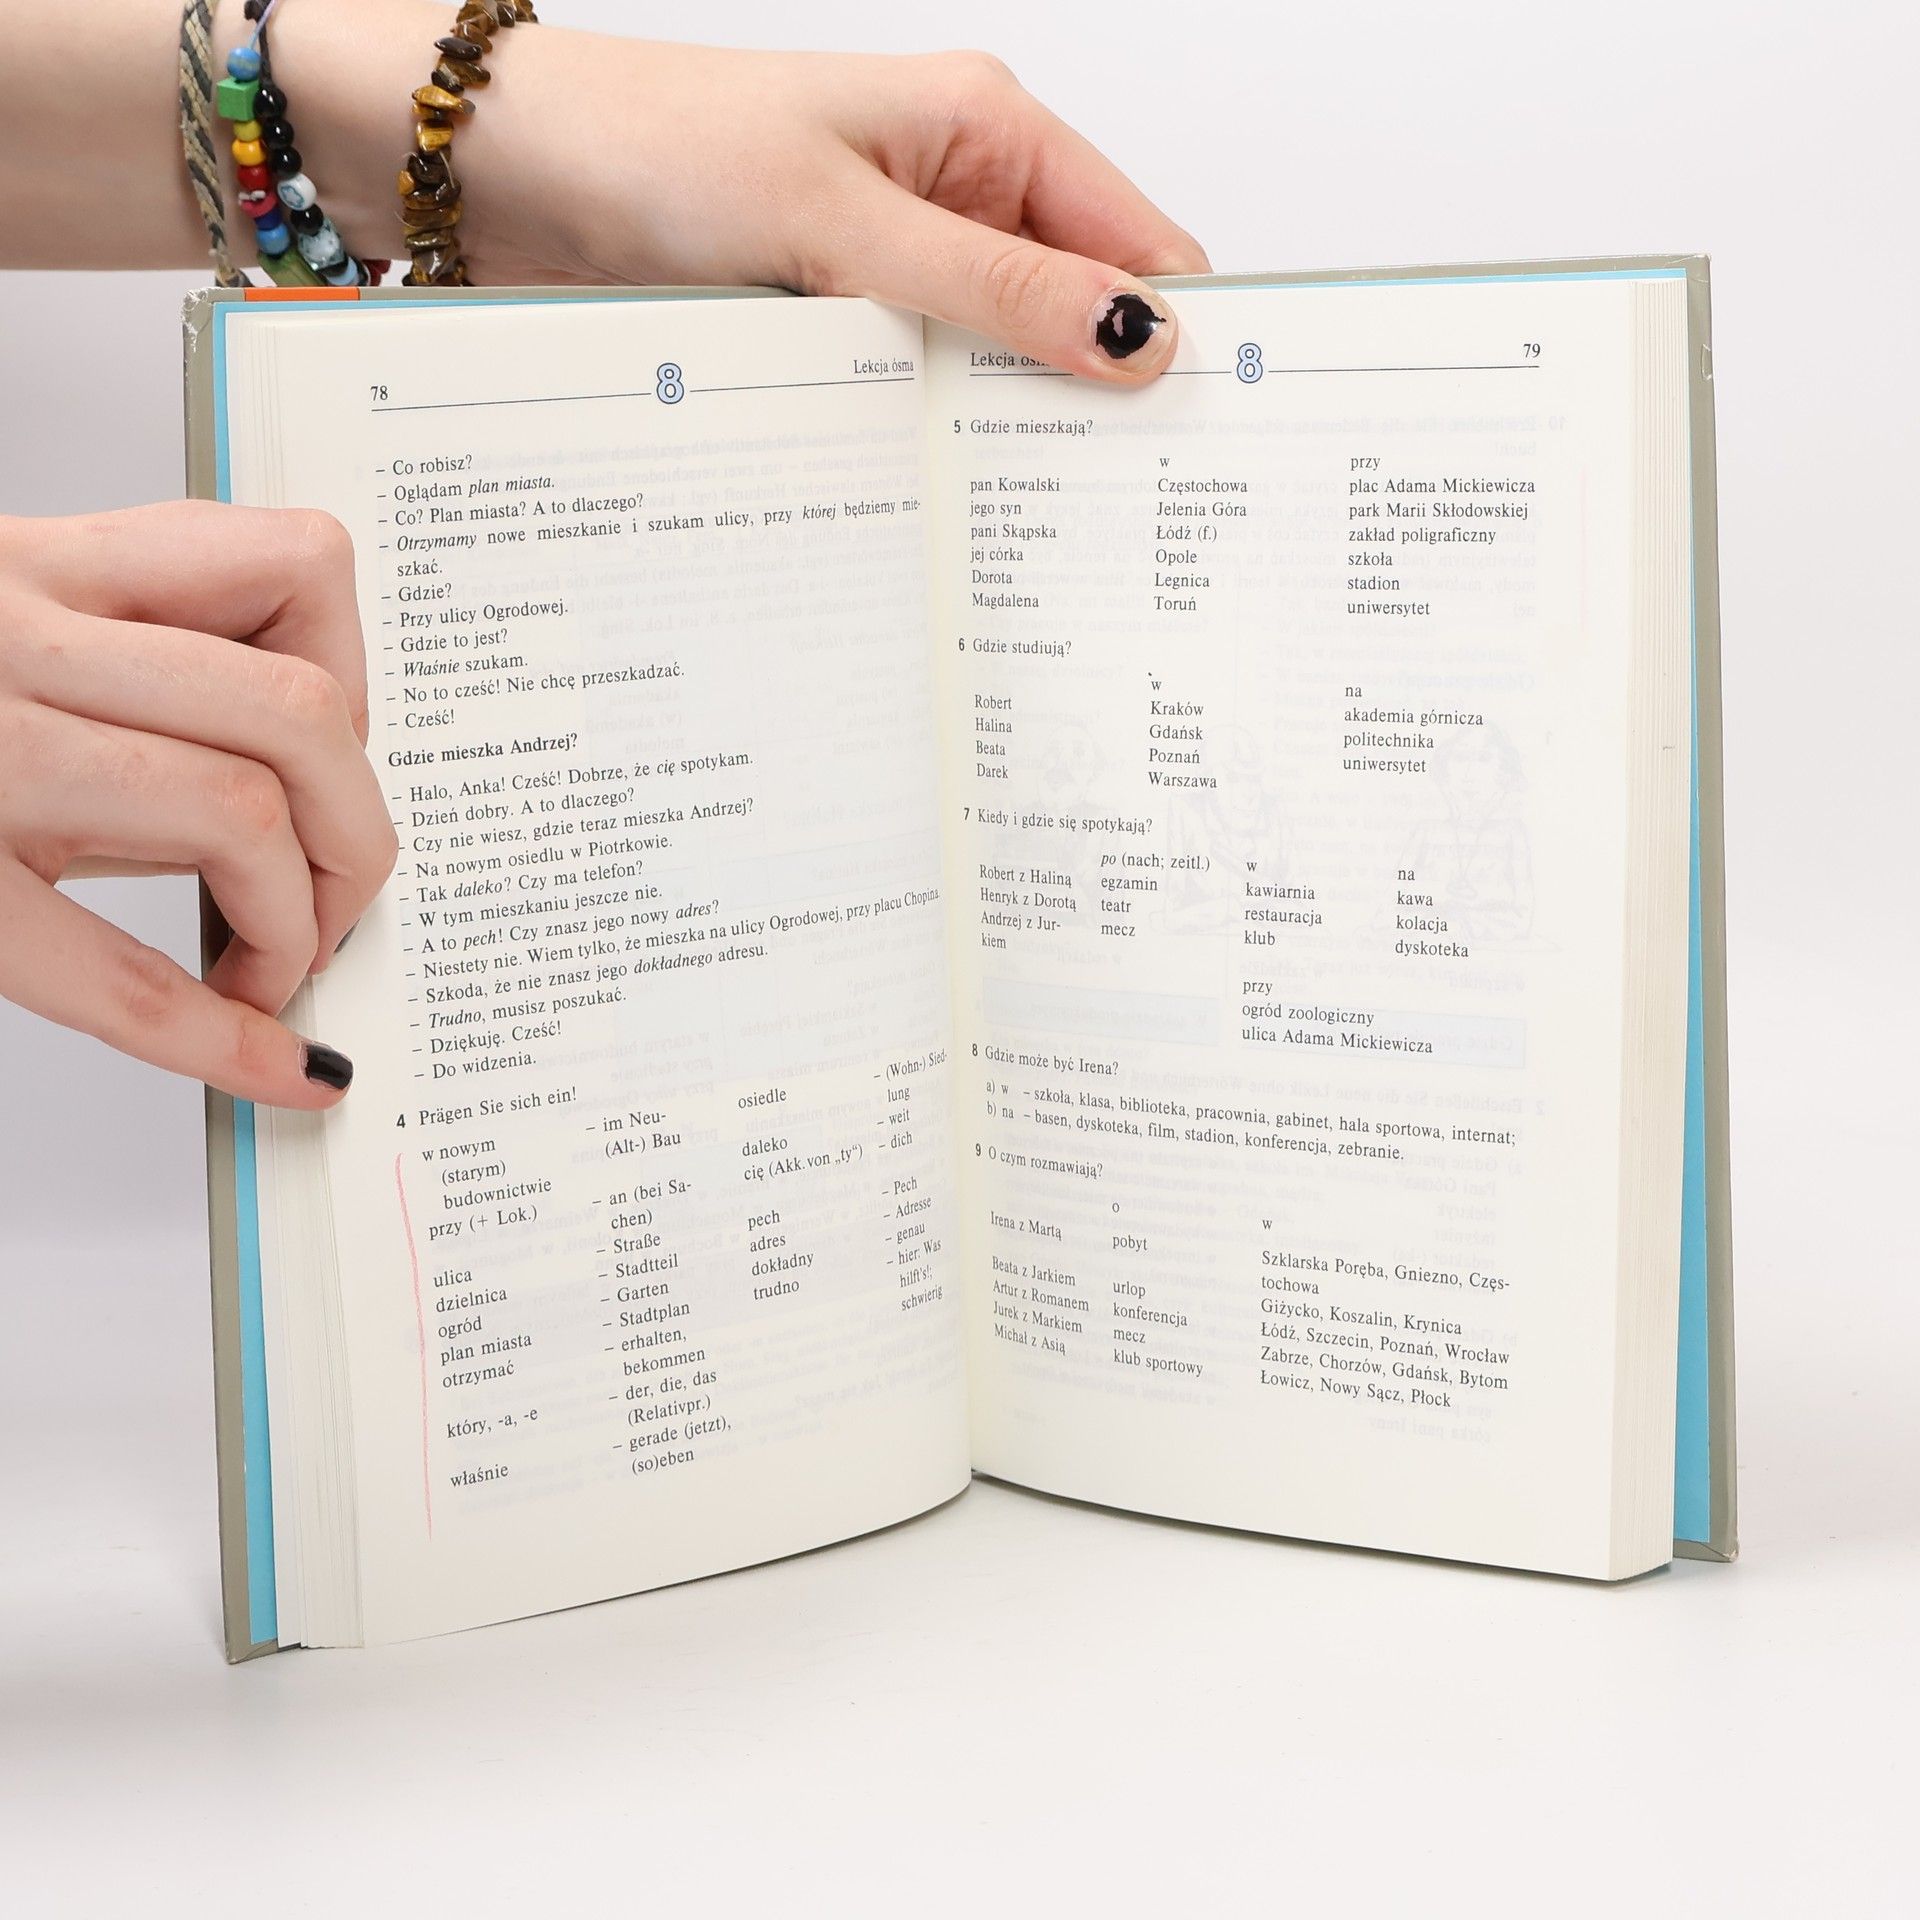 78
8
Lekcja ósma
– Co robisz?
– Oglądam plan miasta.
– Co? Plan miasta? A to dlaczego?
– Otrzymamy nowe mieszkanie i szukam ulicy, przy której będziemy mie-
szkać.
– Gdzie?
– Przy ulicy Ogrodowej.
– Gdzie to jest?
– Właśnie szukam.
– No to cześć! Nie chcę przeszkadzać.
– Cześć!
Gdzie mieszka Andrzej?
– Halo, Anka! Cześć! Dobrze, że cię spotykam.
– Dzień dobry. A to dlaczego?
– Czy nie wiesz, gdzie teraz mieszka Andrzej?
– Na nowym osiedlu w Piotrkowie.
– Tak daleko? Czy ma telefon?
– W tym mieszkaniu jeszcze nie.
– A to pech! Czy znasz jego nowy adres?
– Niestety nie. Wiem tylko, że mieszka na ulicy Ogrodowej, przy placu Chopina.
– Szkoda, że nie znasz jego dokładnego adresu.
– Trudno, musisz poszukać.
– Dziękuję. Cześć!
– Do widzenia.
4 Prägen Sie sich ein!
w nowym – im Neu-
(starym) (Alt-) Bau
budownictwie
przy (+ Lok.) – an (bei Sa-
chen)
ulica – Straße
dzielnica – Stadtteil
ogród – Garten
plan miasta – Stadtplan
otrzymać – erhalten,
bekommen
który, -a, -e – der, die, das
(Relativpr.)
właśnie – gerade (jetzt),
(so)eben
osiedle – (Wohn-) Sied-
lung
daleko – weit
cię (Akk. von „ty”) – dich
pech – Pech
adres – Adresse
dokładny – genau
trudno – hier: Was
hilft's!;
schwierig
Lekcja
8
79
5 Gdzie mieszkają?
w przy
pan Kowalski Częstochowa plac Adama Mickiewicza
jego syn Jelenia Góra park Marii Skłodowskiej
pani Skąpska Łódź (f.) zakład poligraficzny
jej córka Opole szkoła
Dorota Legnica stadion
Magdalena Toruń uniwersytet
6 Gdzie studiują?
w na
Robert Kraków akademia górnicza
Halina Gdańsk politechnika
Beata Poznań uniwersytet
Darek Warszawa
7 Kiedy i gdzie się spotykają?
po (nach; zeitl.) w na
Robert z Haliną egzamin kawiarnia kawa
Henryk z Dorotą teatr restauracja kolacja
Andrzej z Jur- mecz klub dyskoteka
kiem
przy
ogród zoologiczny
ulica Adama Mickiewicza
8 Gdzie może być Irena?
a) w – szkoła, klasa, biblioteka, pracownia, gabinet, hala sportowa, internat;
b) na – basen, dyskoteka, film, stadion, konferencja, zebranie.
9 O czym rozmawiają?
o w
Irena z Martą pobyt Szklarska Poręba, Gniezno, Częs-
tochowa
Beata z Jarkiem urlop Giżycko, Koszalin, Krynica
Artur z Romanem konferencja Łódź, Szczecin, Poznań, Wrocław
Jurek z Markiem mecz Zabrze, Chorzów, Gdańsk, Bytom
Michał z Asią klub sportowy Łowicz, Nowy Sącz, Płock